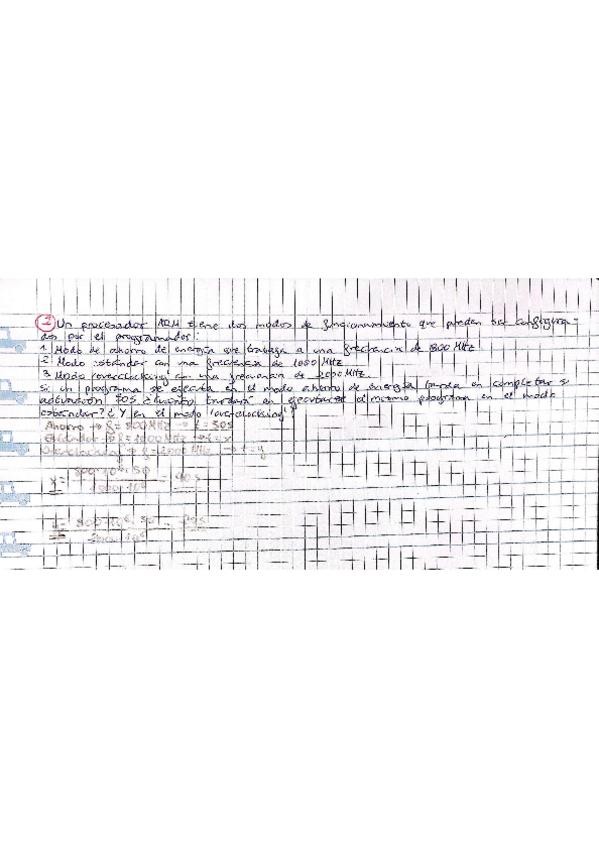 1 Un procesador ARM tiene dos modos de funcionamiento que pueden ser configura-
dos por el programador:
1. Modo de ahorro de energía que trabaja a una frecuencia de 800 MHz
2. Modo stándar con una frecuencia de 1000 MHz
3. Modo 'overclocking' con una frecuencia de 2000 MHz.
si un programa se ejecuta en el modo ahorro de energía tarda en completar s
activación 50s ¿cuánto tardará en ejecutarse el mismo programa en el modo
estandar? ¿Y en el modo 'overclocking'?
Ahorro → f = 800 MHz → t = 50s
Estándar → f = 1000 MHz → t = x
Overclocking → f = 2000 MHz → t = y
x = 800·10⁶·50 = 40s
y = 800·10⁶·50